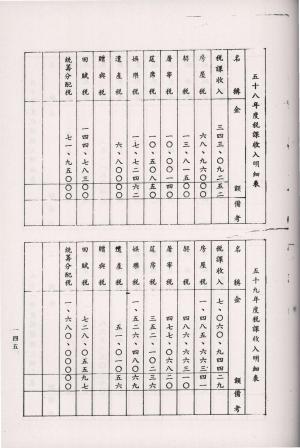 五十八年度稅課收入明細表
名稱 金額 備考
稅課收入 三四三、〇九二五二
房屋稅 六八、九六〇〇〇
契稅 一三、八一五〇〇
屠宰稅 一〇、〇〇一四〇
筵席稅 一〇、五〇八五〇
娛樂稅 一七、七二四六二
遺產稅 六、八〇〇〇〇
贈與稅
田賦稅 一四四、七八三〇〇
統籌分配稅 七一、九五〇〇〇
五十九年度稅課收入明細表
名稱 金額 備考
稅課收入 七、〇六〇、九四四二九
房屋稅
契稅 四八六、六三三一〇
屠宰稅 四七七、〇六八二〇
筵席稅
娛樂稅 一、五二六、四八〇六九
遺產稅 五一、〇一〇五六
贈與稅
田賦稅 七二八、〇五五九七
統籌分配稅 一、六八〇、〇〇〇〇〇
一四五